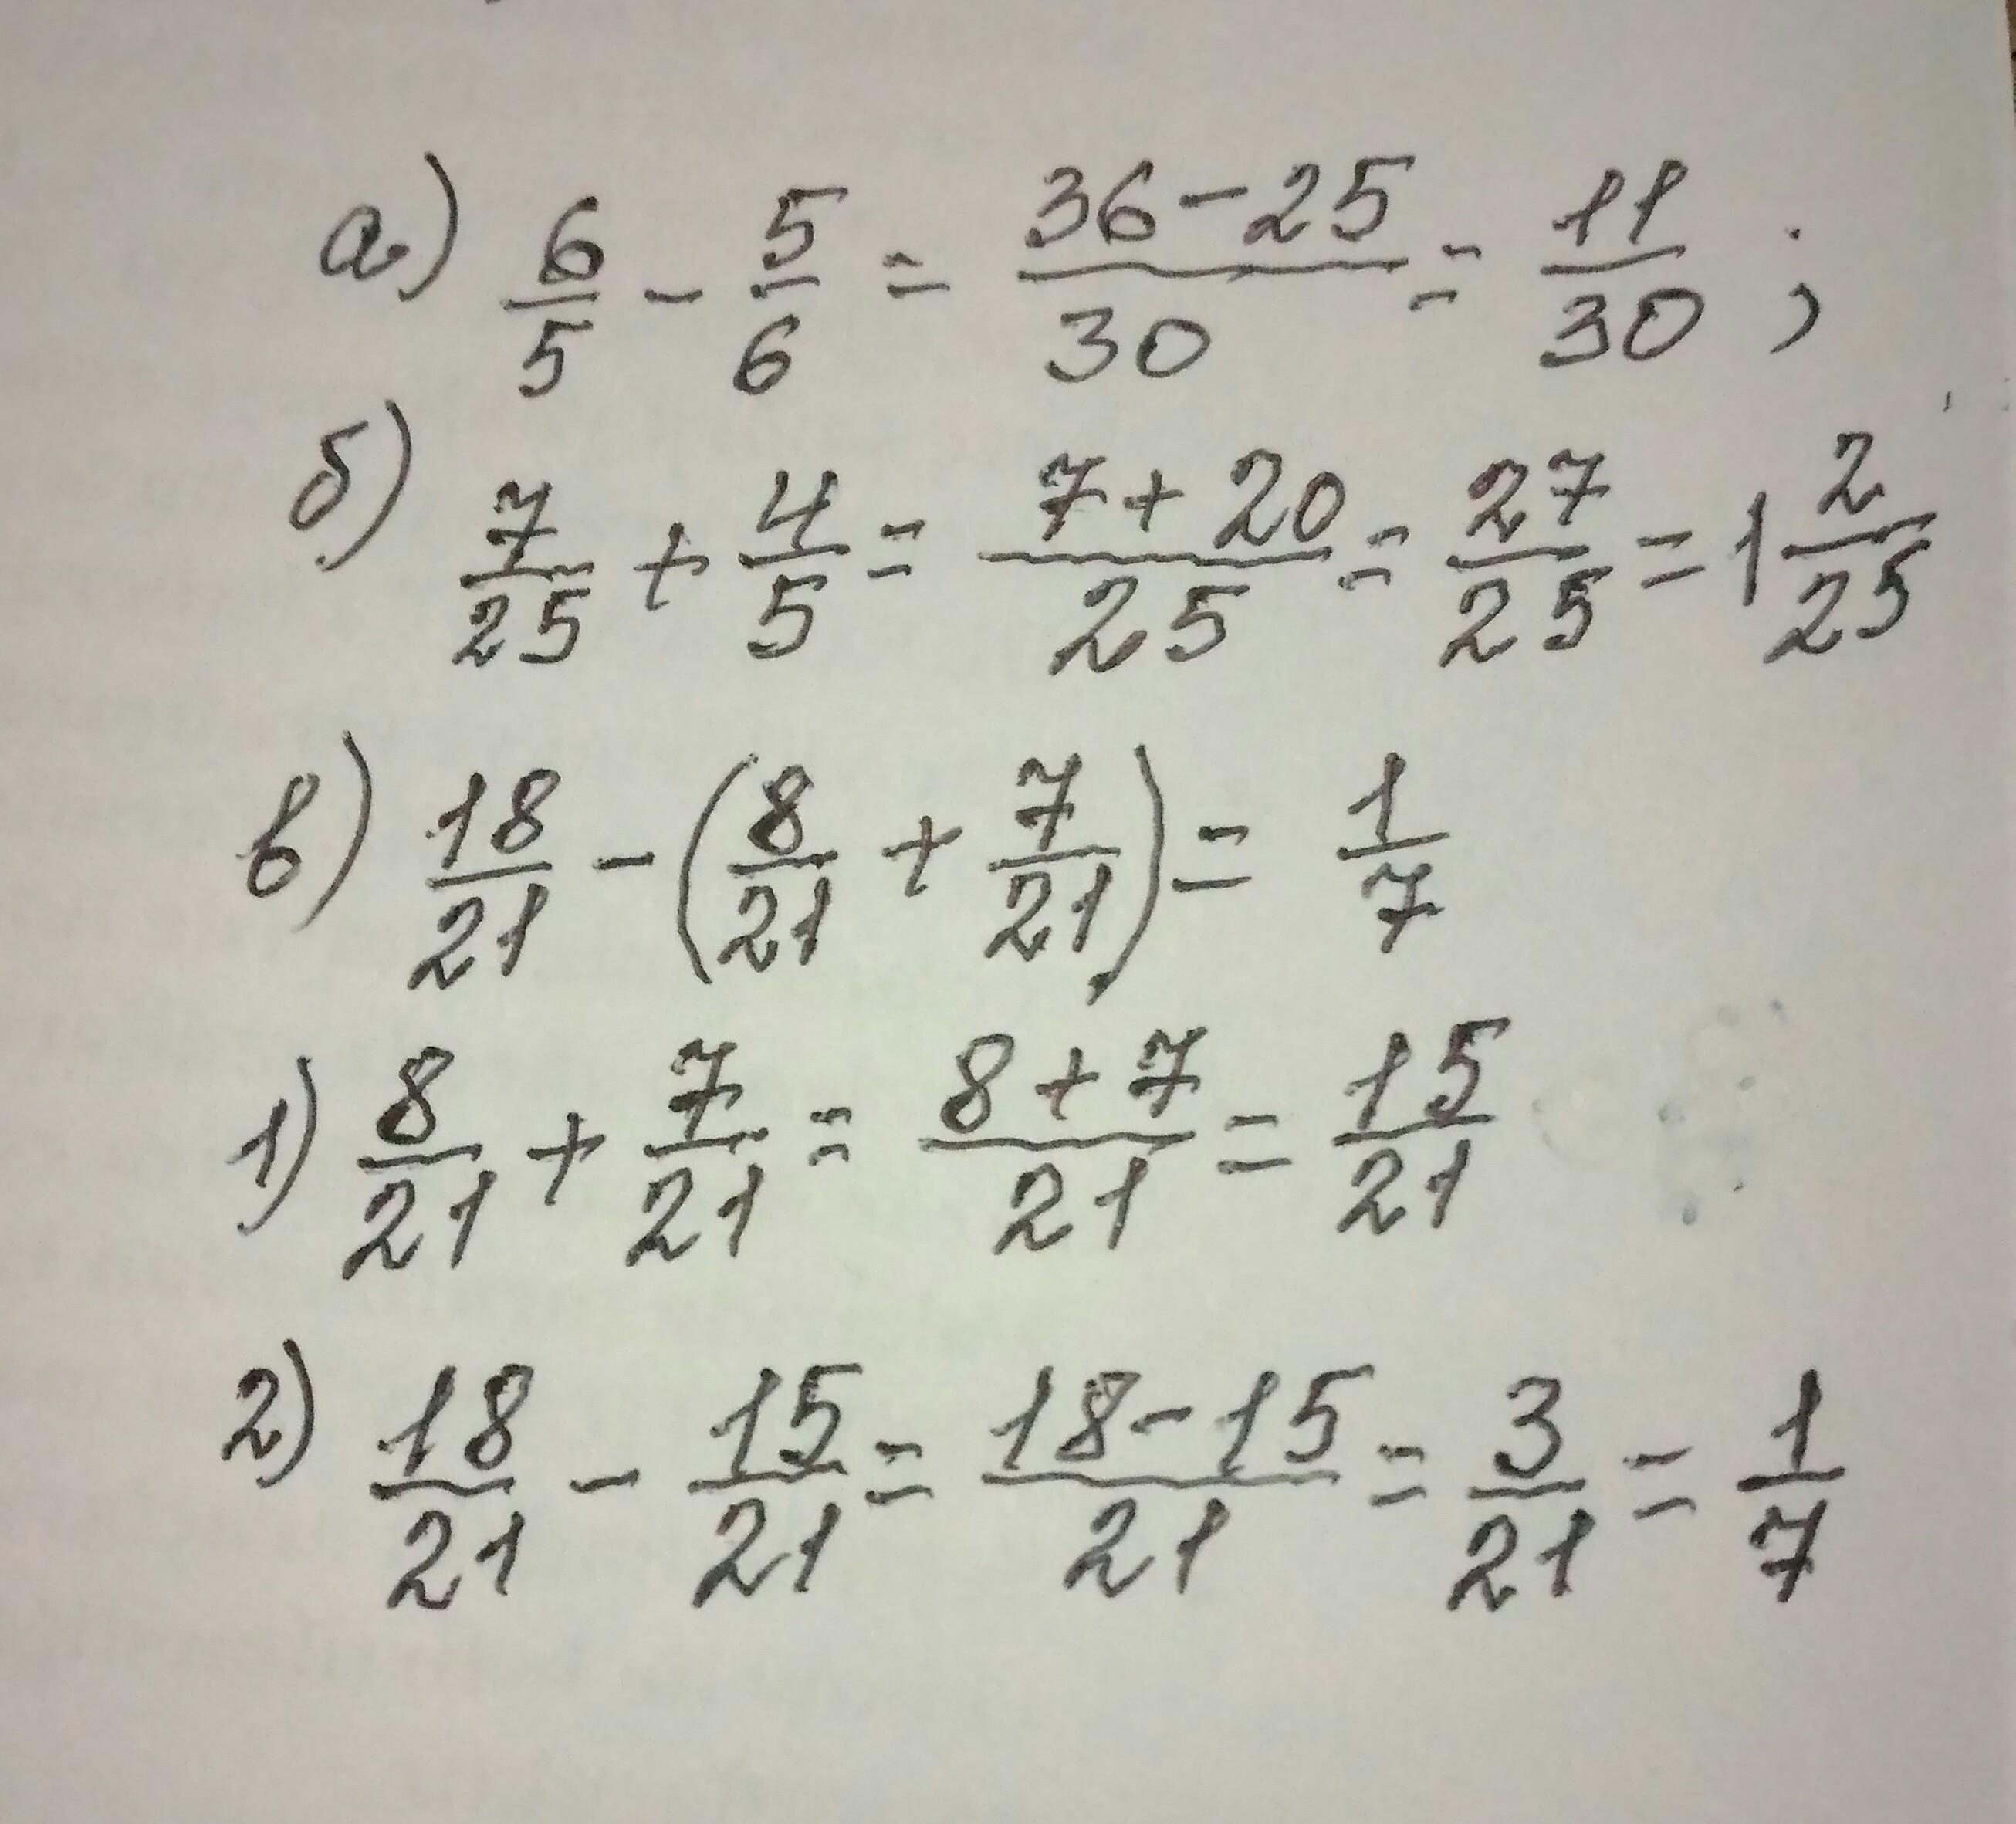 а) 6/5 - 5/6 = (36-25)/30 = 11/30 ;
б) 7/25 + 4/5 = (7+20)/25 = 27/25 = 1 2/25
в) 18/21 - (8/21 + 7/21) = 1/7
1) 8/21 + 7/21 = (8+7)/21 = 15/21
2) 18/21 - 15/21 = (18-15)/21 = 3/21 = 1/7